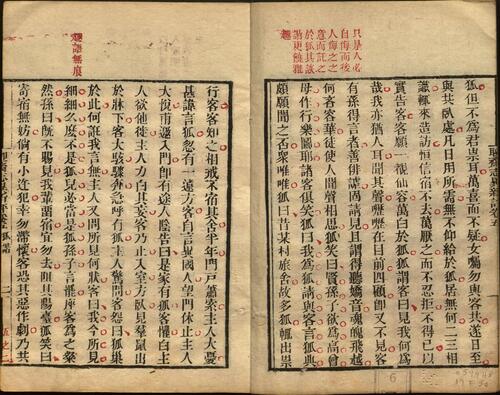 只是人必
自侮而後
人侮之之
意而託之
於狐其詼
諧更饒雅
趣
狐但不為君祟耳萬喜而不疑女囑勿與客共遂日至
與共臥處凡日用所需無不仰給於狐居無何二三相
識輒來造訪恒信宿不去萬厭之而不忍拒不得已以
實告客客願一覩仙容萬白於狐狐謂客曰見我何為
哉我亦猶人耳聞其聲嚦嚦在目前四顧即又不見客
有孫得言者善俳謔固請見且謂得聽嬌音魂魄飛越
何吝容華徒使人聞聲相思狐笑曰賢孫子欲為高曾
母作行樂圖耶諸客俱笑狐曰我為狐請與客言狐典
頗願聞之否衆唯唯狐曰昔某村旅舍故多狐輒出祟
語無痕
行客客知之相戒不宿其舍半年門戶蕭索主人大憂
甚諱言狐忽有一遠方客自言異國人望門休止主人
大悅甫邀入門即有途人陰告曰是家有狐客懼白主
人欲他徙主人力白其妄客乃止入室方臥見羣鼠出
於牀下客大駭驟奔急呼有狐主人驚問客怨曰狐巢
於此何誑我言無主人又問所見何狀客曰我今所見
細細么麼不是狐兒必當是狐孫子言罷座客為之粲
然孫曰既不賜見我輩留宿宜勿去阻其陽臺狐笑曰
寄宿無妨倘有小迕犯幸勿滯懷客恐其惡作劇乃共
狐諧